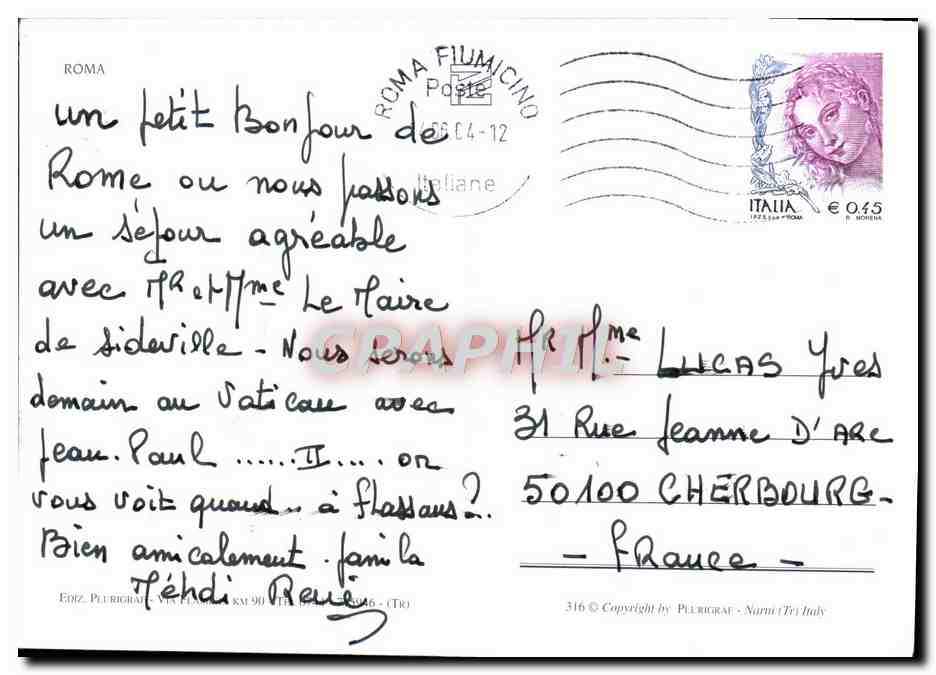 ROMA
un petit Bonjour de
Rome ou nous passons
un séjour agréable
avec Mr et Mme Le Maire
de sideville - Nous serons
demain au Vatican avec
jean. Paul ...... II .... on
vous voit quand.. à flassans?.
Bien amicalement. janila
Méhdi René
EDIZ. PLURIGRAF - VIA KM 90 - (TR)
ROMA FIUMICINO
Poste
06.04-12
Italiane
ITALIA € 0,45
I.P.Z.S. S.p.A. - ROMA R. MORENA
CPAPHIL
Mr Mme
LUCAS Yves
31 Rue Jeanne D'ARC
50100 CHERBOURG-
- FRance -
316 © Copyright by PLURIGRAF - Narni (Tr) Italy